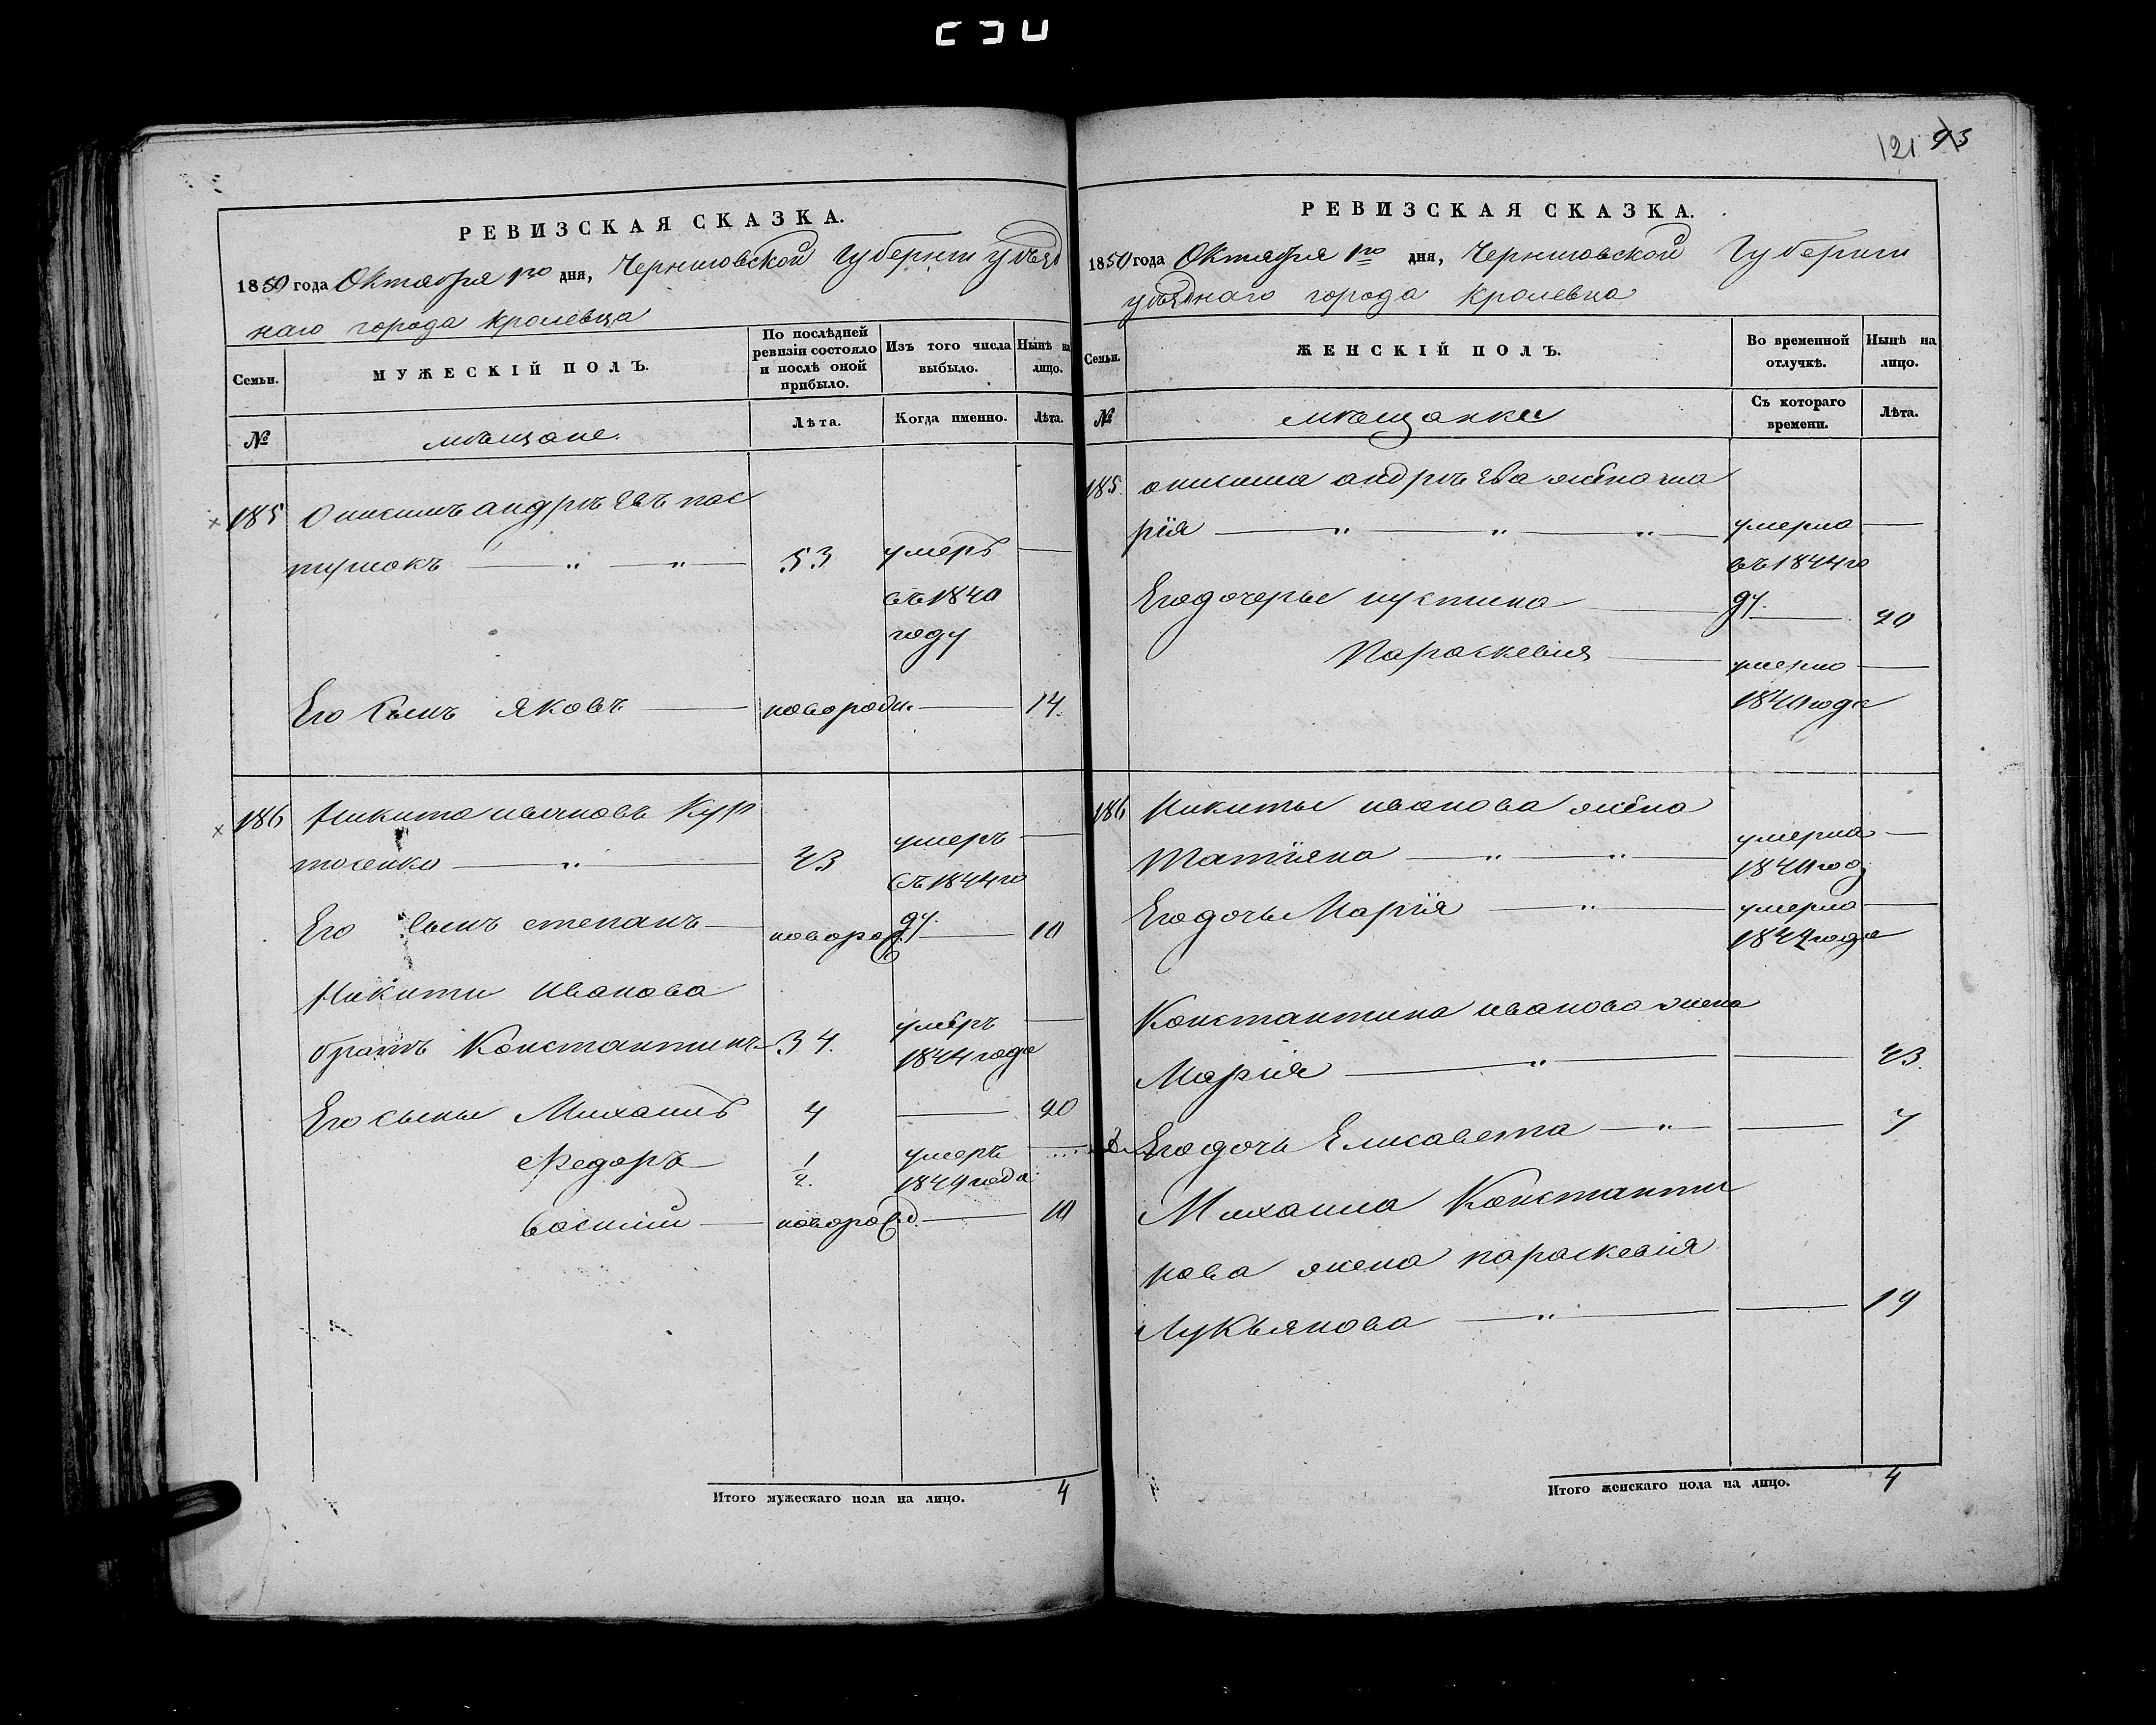 121 93
РЕВИЗСКАЯ СКАЗКА.
1850 года Октября 1го дня, Черниговской Губернии уѣзд
наго города Кролевца
Семьи.
МУЖЕСКІЙ ПОЛЪ.
По послѣдней ревизіи состояло и послѣ оной прибыло.
Изъ того числа выбыло.
Нынѣ на лицо.
№
мѣщане.
Лѣта.
Когда именно.
Лѣта.
185 Онисимъ андрѣевъ пас
тушокъ 53 умеръ
въ 1840
году
Его Сынъ яковъ новородн. 14.
186 Никита ивановъ Кур
тосенко 43 умеръ
въ 1844 го
ду.
Его Сынъ степанъ новорож 10
Никиты Иванова
братъ Константинъ 34. умеръ
1844 года
Его сыны Михаилъ 4 20
Федоръ 1/2. умеръ
1849 года
василий новорож 10
Итого мужескаго пола на лицо. 4
РЕВИЗСКАЯ СКАЗКА.
1850 года Октября 1го дня, Черниговской Губернии
уѣзднаго города Кролевца
Семьи.
ЖЕНСКІЙ ПОЛЪ.
Во временной отлучкѣ.
Нынѣ на лицо.
№
мѣщанки
Съ котораго времени.
Лѣта.
185. онисима андрѣева жена ма
рїя умерла
въ 1844 го
ду.
Его дочерье иустина 20
Параскевия умерла
1840 года
186 Никиты иванова жена
Татїяна умерла
1840 год
Его дочь Марїя умерла
1844 года
Константина иванова жена
Мария 43.
Его дочь Елисавета 7
Михаила Константи
нова жена параскевия
Лукьянова 19
Итого женскаго пола на лицо. 4